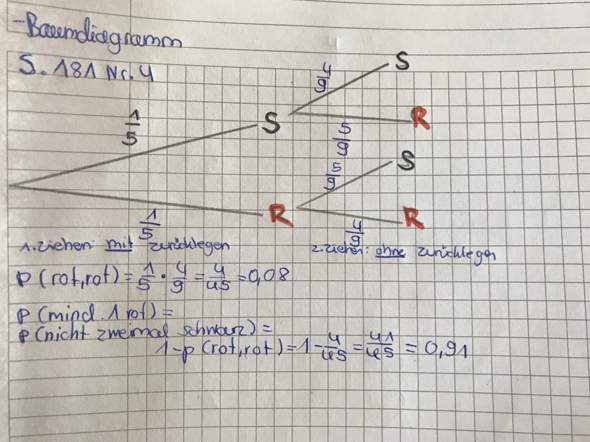 -Baumdiagramm
S. 181 Nr. 4
4/9 S
1/5 S
5/9 R
5/9 S
1/5 R
4/9 R
1.ziehen: mit zurücklegen 2.ziehen: ohne zurücklegen
P(rot,rot) = 1/5 · 4/9 = 4/45 = 0,08
P(mind. 1 rot) =
P(nicht zweimal schwarz) =
1-p(rot,rot) = 1 - 4/45 = 41/45 = 0,91